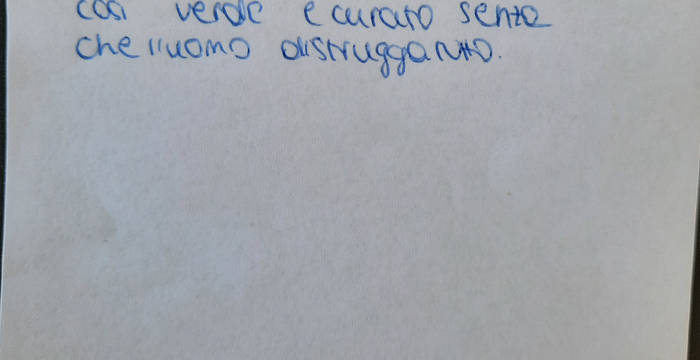 così verde e curato senza
che l'uomo distrugga tutto.